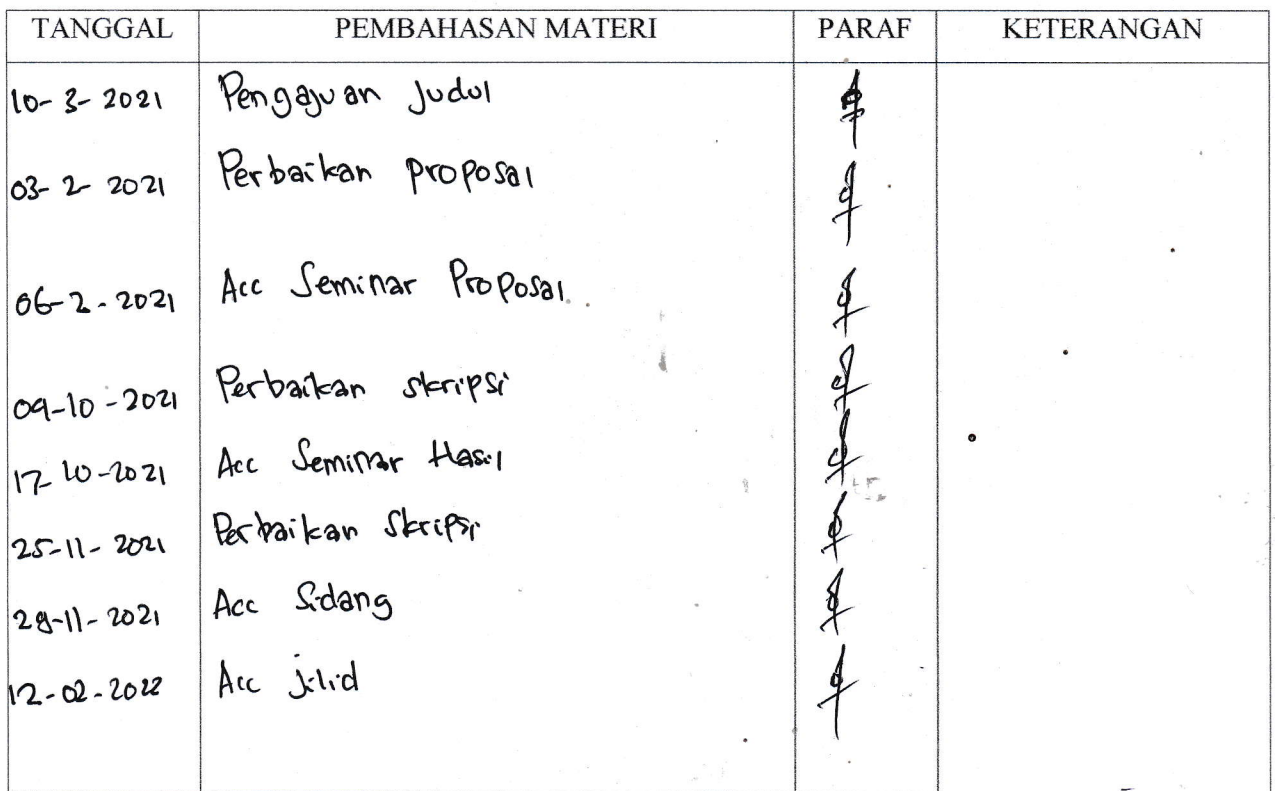 TANGGAL PEMBAHASAN MATERI PARAF KETERANGAN
10-3-2021 Pengajuan Judul
03-2-2021 Perbaikan proposal
06-2-2021 Acc Seminar Proposal
09-10-2021 Perbaikan skripsi
17-10-2021 Acc Seminar Hasil
25-11-2021 Perbaikan Skripsi
29-11-2021 Acc Sidang
12-02-2022 Acc jilid